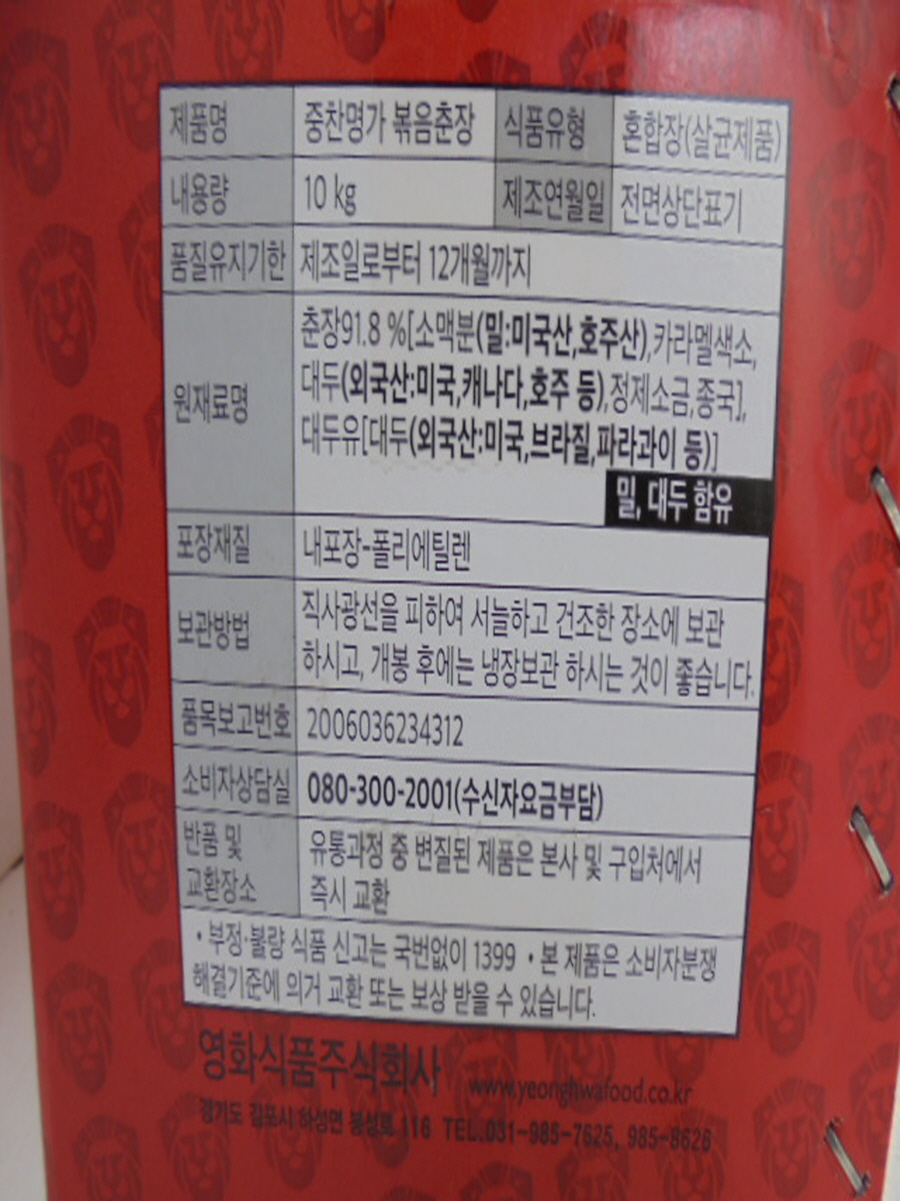 제품명 중찬명가 볶음춘장 식품유형 혼합장(살균제품)
내용량 10 kg 제조연월일 전면상단표기
품질유지기한 제조일로부터 12개월까지
원재료명 춘장91.8 %[소맥분(밀:미국산,호주산),카라멜색소,
대두(외국산:미국,캐나다,호주 등),정제소금,종국],
대두유[대두(외국산:미국,브라질,파라과이 등)]
밀, 대두 함유
포장재질 내포장-폴리에틸렌
보관방법 직사광선을 피하여 서늘하고 건조한 장소에 보관
하시고, 개봉 후에는 냉장보관 하시는 것이 좋습니다.
품목보고번호 2006036234312
소비자상담실 080-300-2001(수신자요금부담)
반품 및 교환장소 유통과정 중 변질된 제품은 본사 및 구입처에서
즉시 교환
• 부정·불량 식품 신고는 국번없이 1399 • 본 제품은 소비자분쟁
해결기준에 의거 교환 또는 보상 받을 수 있습니다.
영화식품주식회사 www.yeonghwafood.co.kr
경기도 김포시 하성면 봉성로 116 TEL.031-985-7625, 985-8626